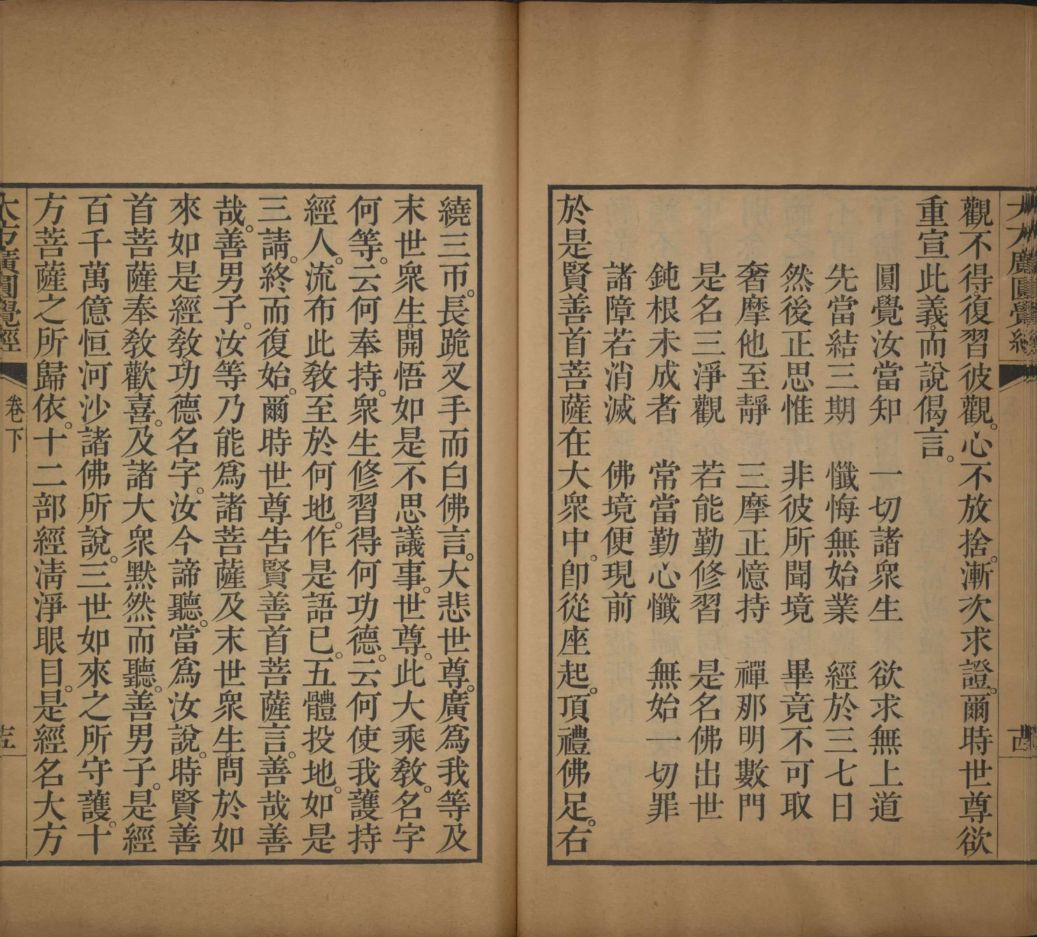 大方廣圓覺經
觀不得復習彼觀。心不放捨。漸次求證。爾時世尊欲
重宣此義。而說偈言。
圓覺汝當知　一切諸衆生　欲求無上道
先當結三期　懺悔無始業　經於三七日
然後正思惟　非彼所聞境　畢竟不可取
奢摩他至靜　三摩正憶持　禪那明數門
是名三淨觀　若能勤修習　是名佛出世
鈍根未成者　常當勤心懺　無始一切罪
諸障若消滅　佛境便現前
於是賢善首菩薩在大衆中。卽從座起。頂禮佛足。右
繞三帀。長跪叉手而白佛言。大悲世尊。廣爲我等及
末世衆生開悟如是不思議事。世尊。此大乘敎。名字
何等。云何奉持。衆生修習得何功德。云何使我護持
經人。流布此敎至於何地。作是語已。五體投地。如是
三請。終而復始。爾時世尊告賢善首菩薩言。善哉善
哉。善男子。汝等乃能爲諸菩薩及末世衆生問於如
來如是經敎。功德名字。汝今諦聽。當爲汝說。時賢善
首菩薩奉敎歡喜。及諸大衆默然而聽。善男子。是經
百千萬億恒河沙諸佛所說。三世如來之所守護。十
方菩薩之所歸依。十二部經淸淨眼目。是經名大方
大方廣圓覺經　卷下